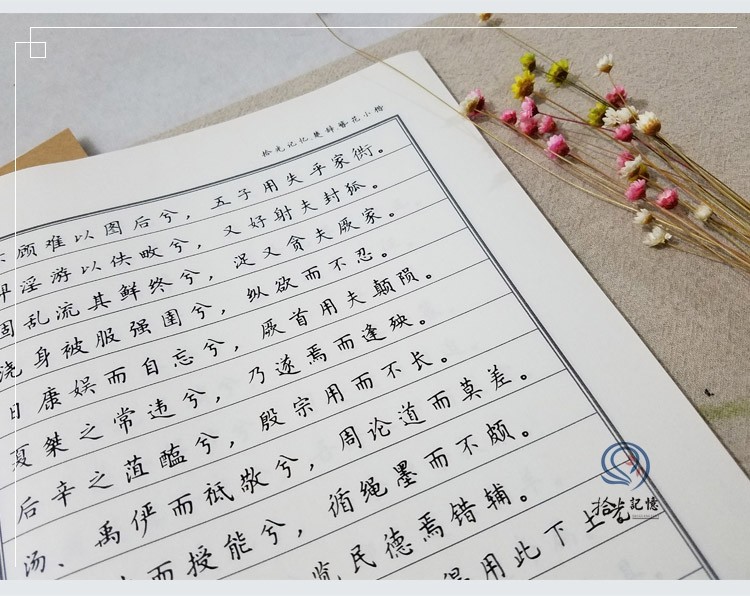 拾光记忆.楚辞簪花小楷
顾难以图后兮，五子用失乎家衖。
羿淫游以佚畋兮，又好射夫封狐。
固乱流其鲜终兮，浞又贪夫厥家。
浇身被服强圉兮，纵欲而不忍。
日康娱而自忘兮，厥首用夫颠陨。
夏桀之常违兮，乃遂焉而逢殃。
后辛之菹醢兮，殷宗用而不长。
汤、禹俨而祗敬兮，周论道而莫差。
而授能兮，循绳墨而不颇。
览民德焉错辅。
得用此下土。
拾光記憶